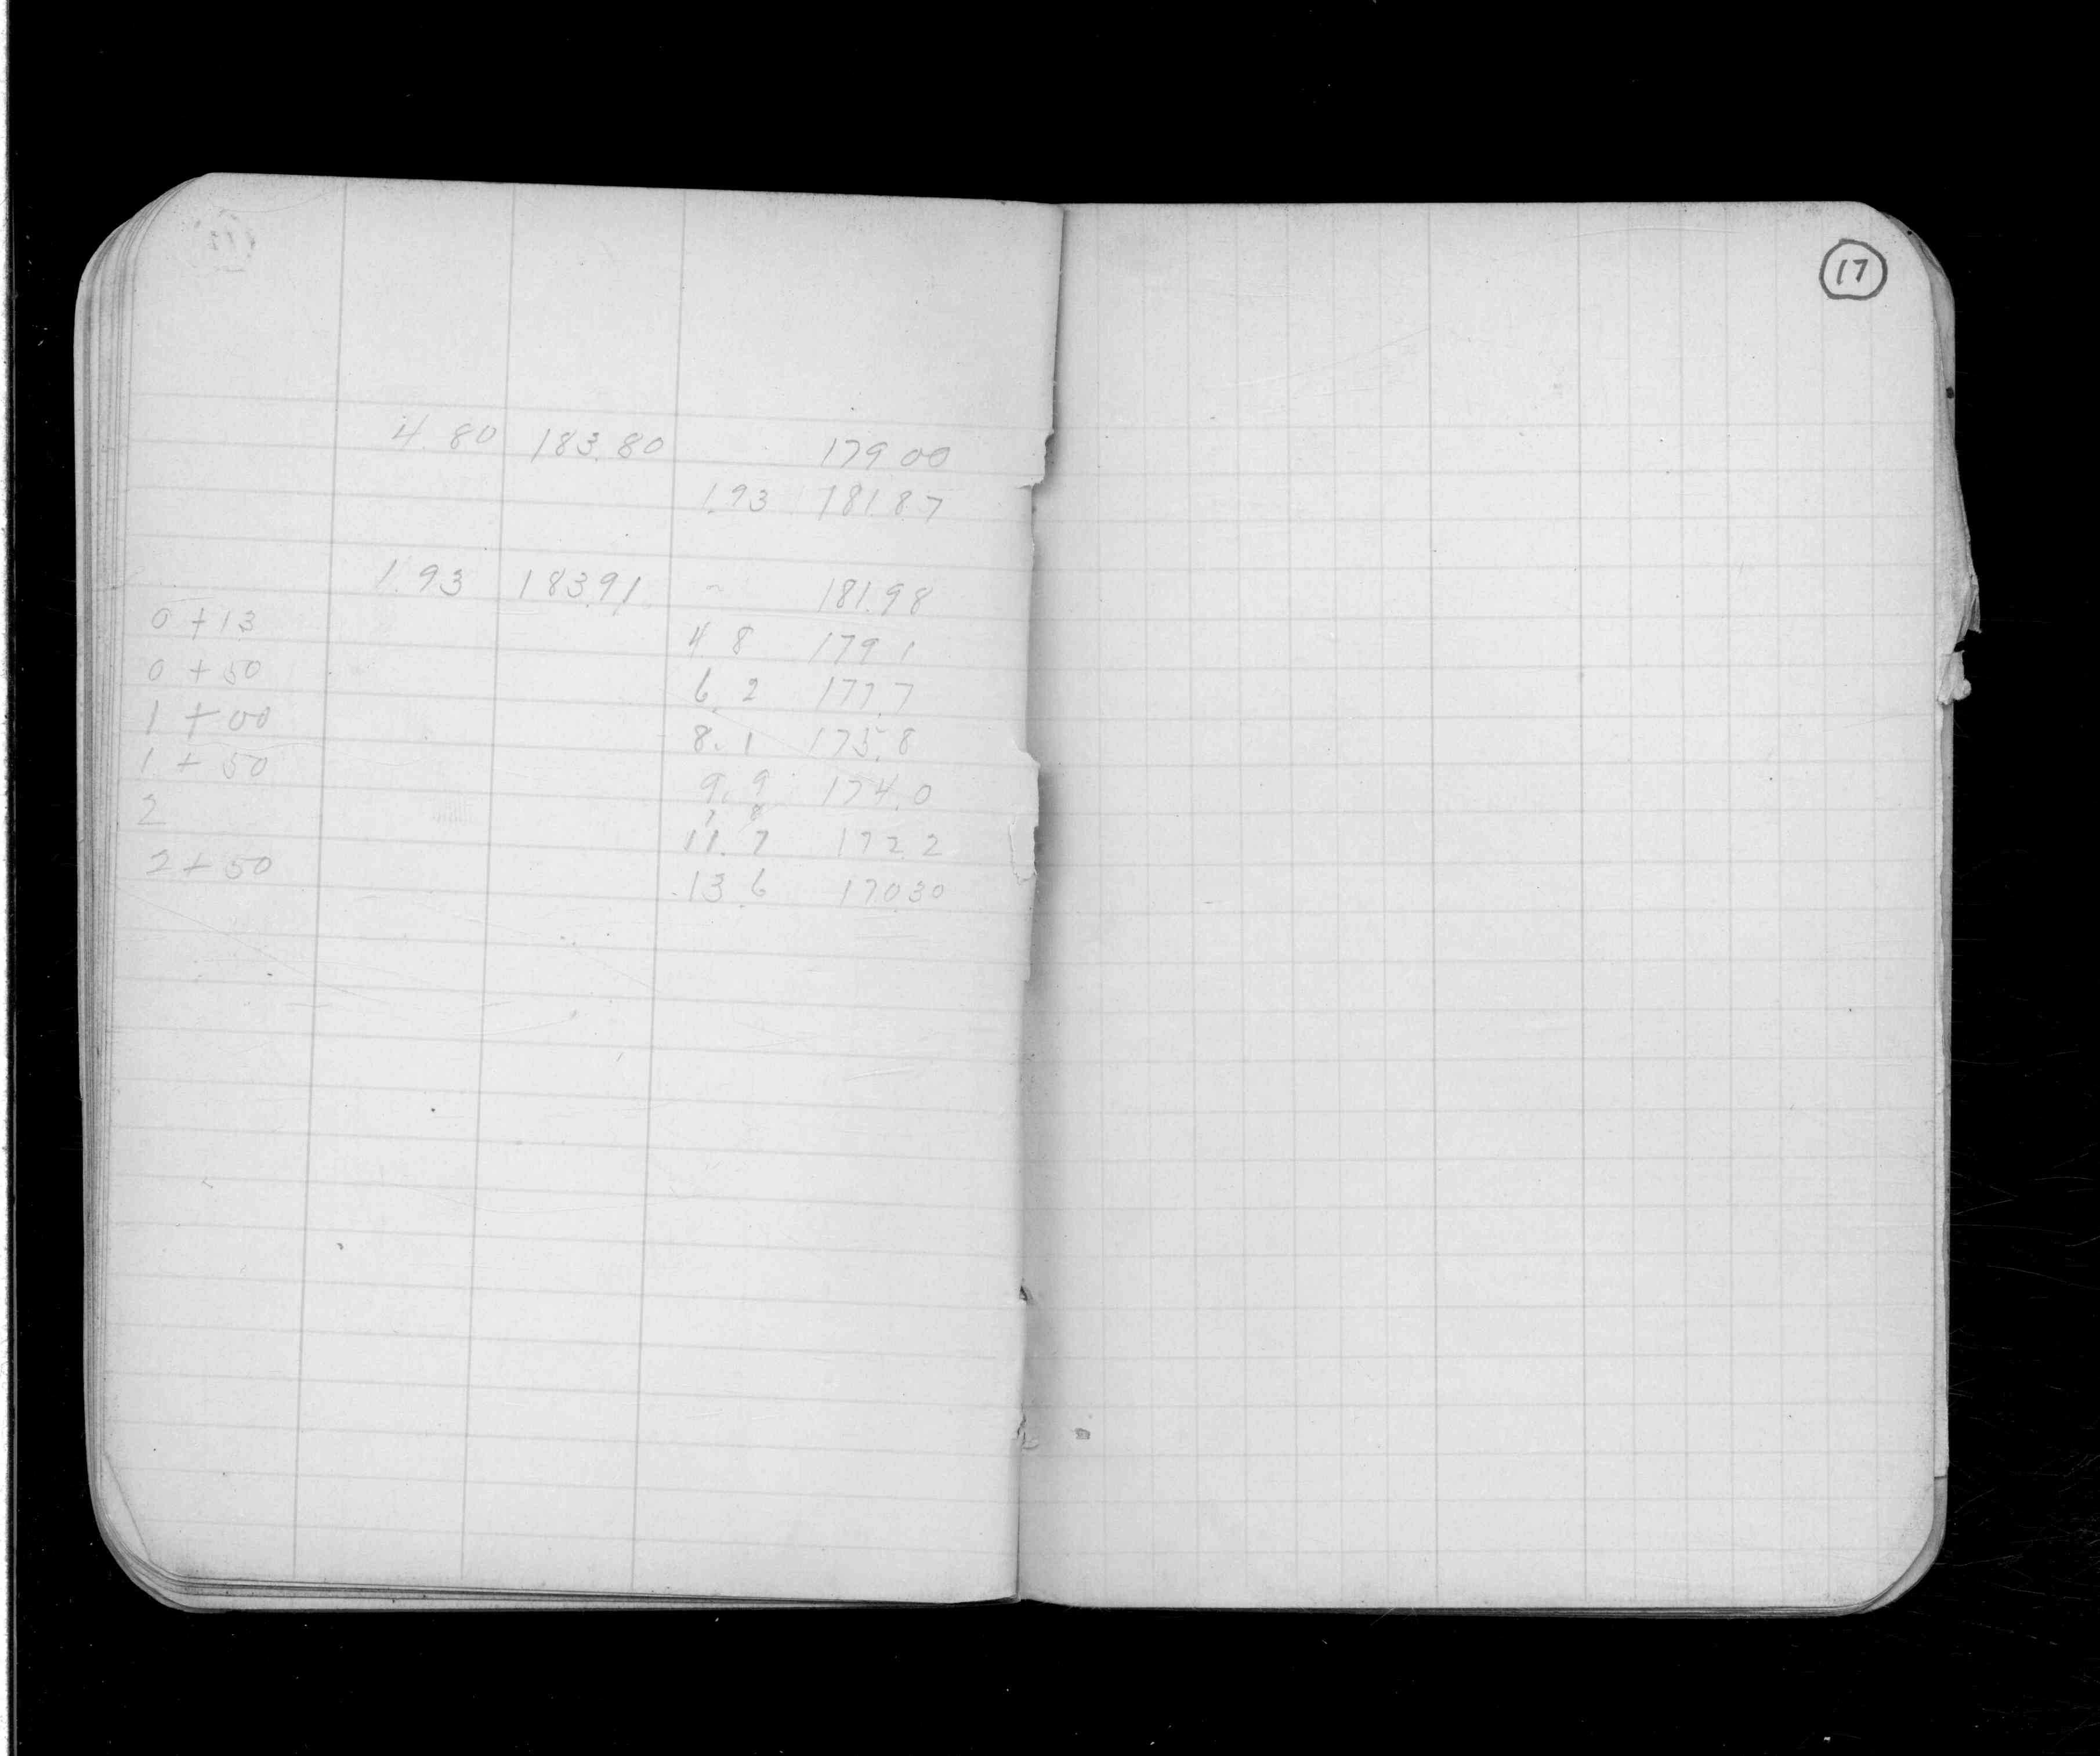 4.80 183.80 179 00
1.93 181.87
1.93 183.91 - 181.98
0 + 13 4 8 179 1
0 + 50 6.2 177.7
1 + 00 8.1 175.8
1 + 50 9.9 174.0
2 11.7 172 2
2 + 50 13.6 170.30
17